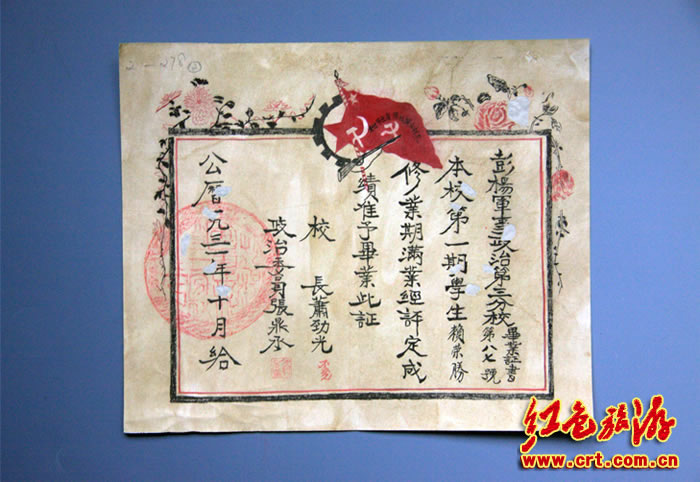 彭楊軍事政治第三分校畢業証書
第八七號
本校第一期學生賴榮勝
修業期滿業經評定成
績准予畢業此証
校長蕭勁光
政治委員張鼎丞
公曆一九三一年十月給
红色旅游
www.crt.com.cn